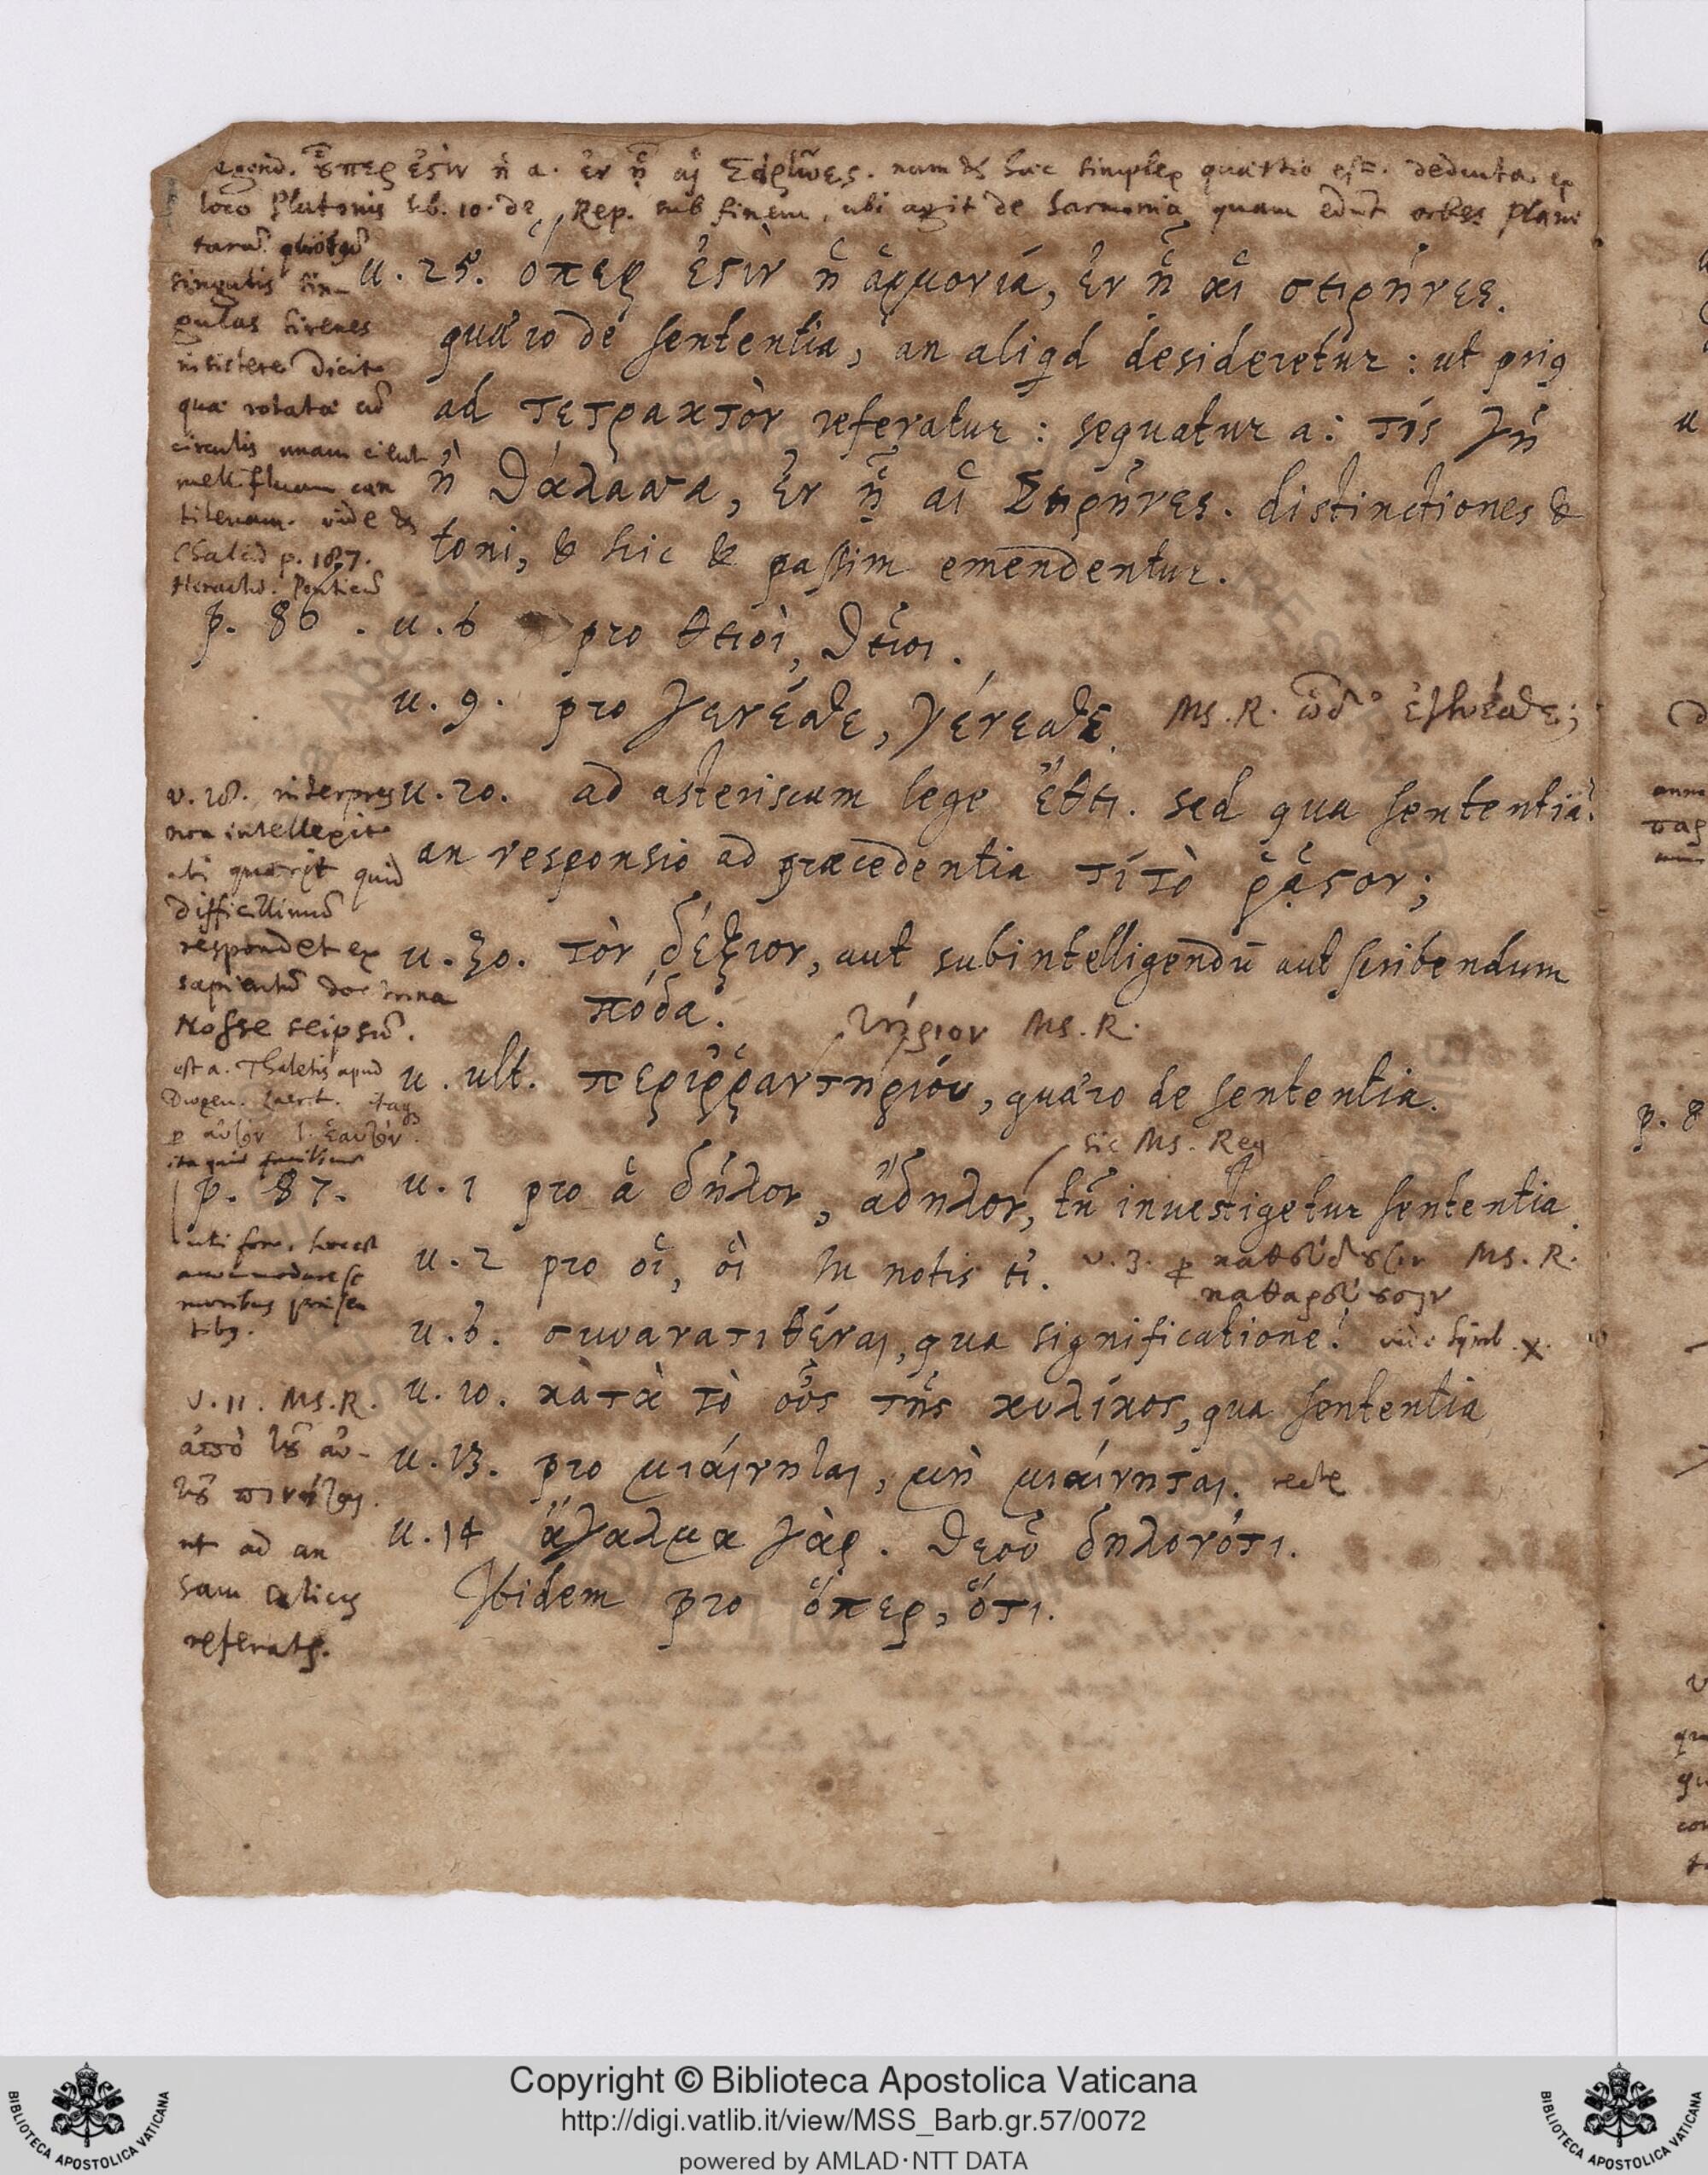 legend. ὅπερ ἐστὶν ἡ a. ἐν ᾗ αἱ Σειρῆνες. nam & hæc simplex quæstio est. deducta ex
loco Platonis lib. 10. de Rep. sub finem, ubi agit de harmonia quam edũt orbes plane
tarũ.
singulis sin-
gulas sirenes
insistere dicit
quæ rotatæ cũ
circulis unam cieũt
mellifluam can
tilenam. vide &
Chalcid p. 187.
Heraclid. Ponticũ
u. 25. ὅπερ ἐστὶν ἡ ἁρμονία, ἐν ᾗ αἱ σειρῆνες.
quæro de sententia, an aliqd desideretur: ut prius
ad τετρακτὺν referatur: sequatur a: τίς γῆ
ἢ θάλασσα, ἐν ᾗ αἱ Σειρῆνες. distinctiones &
toni, & hic & passim emendentur.
p. 86. u. 6 pro θειοὶ, θεῖοι.
u. 9. pro γενέσθε, γένεσθε. MS. R. ἐγενέσθε;
v. 20. interpres
non intellexit
ubi quærit quid
difficillimũ
respondet ex
sapientũ doctrina
Nosse seipsũ.
est a. Thaletis apud
Diogen. Laert. itaq
p αὐτὸν l. ἑαυτόν.
u. 20. ad asteriscum lege ἔθει. sed qua sententia?
an responsio ad præcedentia τί τὸ ῥᾷστον;
u. 30. τὸν δεξιὸν, aut subintelligendũ aut scribendum
πόδα.
τήριον MS. R.
u. ult. περιῤῥαντηρίου, quæro de sententia.
sic MS. Reg
p. 87. u. 1 pro ἃ δῆλον, ἄδηλον, tñ investigetur sententia.
u. 2 pro οἵ, οἳ In notis εἰ. v. 3. p καθεύδουσιν MS. R.
καθαρεύουσιν
u. 6. συνανατιθέναι, qua significatione? vide Symb. X.
u. 10. κατὰ τὸ οὖς τῆς κύλικος, qua sententia
v. 11. MS. R.
ἀπὸ τοῦ αὐ-
τοῦ πινηται.
ut ad an
sam calicis
referatr.
u. 13. pro μιαίνηται, μὴ μιαίνηται. recte
u. 14 ἄγαλμα γὰρ. θεοῦ δηλονότι.
Ibidem pro ὅπερ, ὅτι.
p. 8
Copyright © Biblioteca Apostolica Vaticana
http://digi.vatlib.it/view/MSS_Barb.gr.57/0072
powered by AMLAD·NTT DATA
BIBLIOTECA APOSTOLICA VATICANA
BIBLIOTECA APOSTOLICA VATICANA